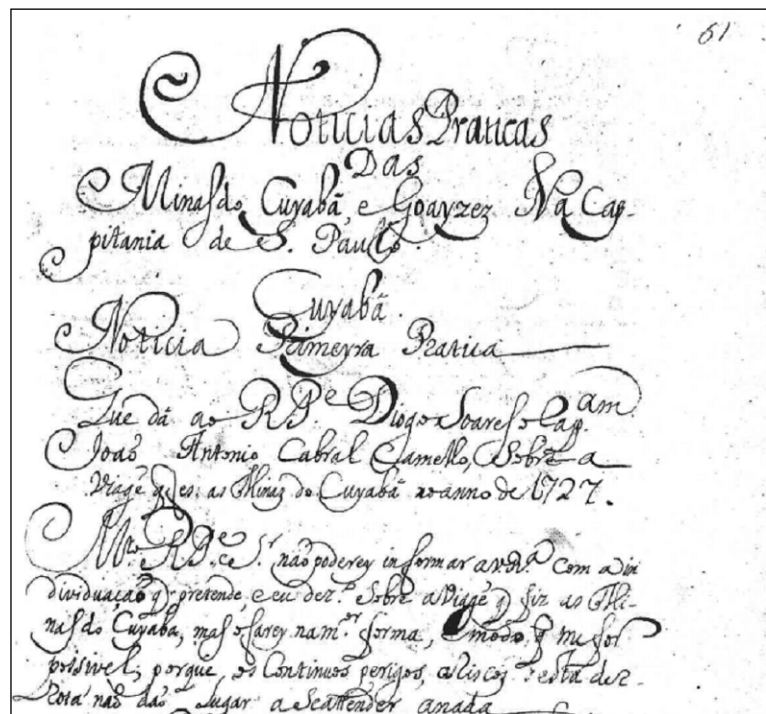 61
Noticias Praticas
Das
Minas do Cuyabâ, e Goayzez Na Cap-
pitania de S. Paulo.
Cuyabâ.
Noticia Primeyra Pratica
Que dâ ao R. P.e Diogo Soares o Cap.am
Joaõ Antonio Cabral Camello, Sobre a
Viagẽ q̃ fes as Minas do Cuyabâ no anno de 1727.
M.to R. P.e e S.r naõ poderey informar a V. R.a com a in
dividuaçaõ q̃ pretende, e eu dez.o Sobre a Viagẽ q̃ fiz as Mi-
nas do Cuyaba, mas o farey na m.or forma, e modo, q̃ me for
poisivel, porque, os Continuos perigos, e riscos desta der-
rota naõ daõ Lugar a Se attender a nada